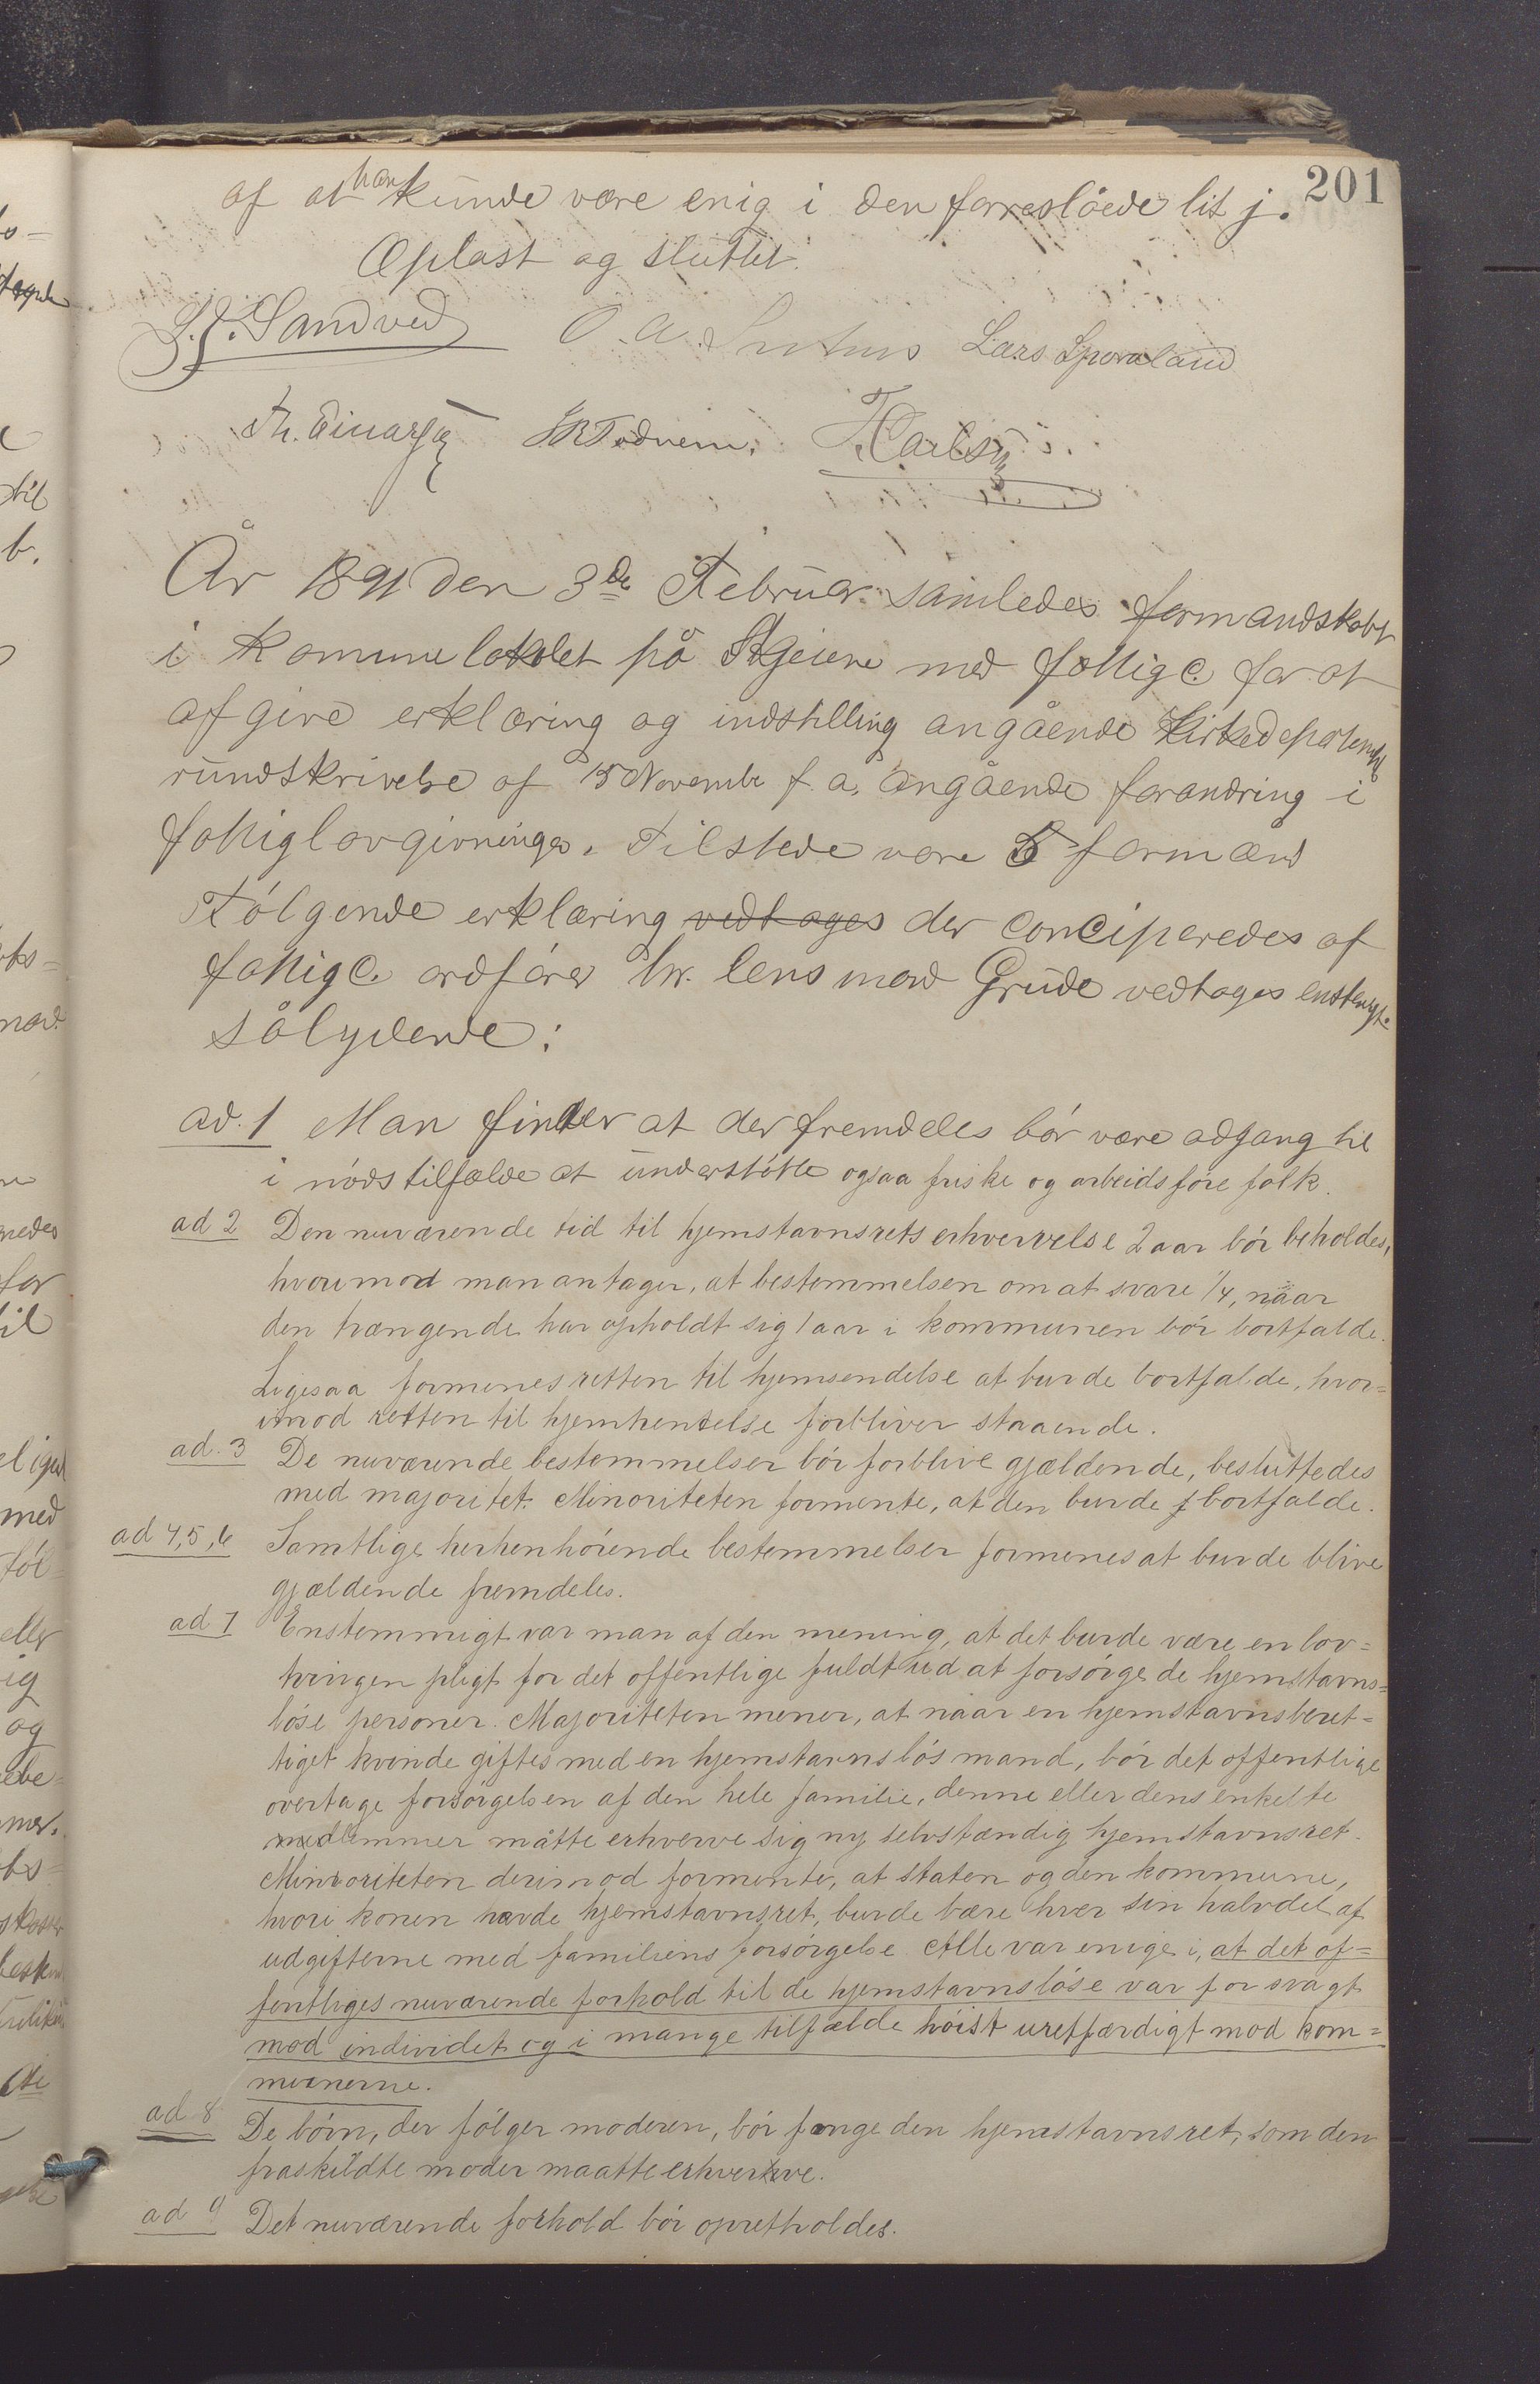 201
af at han kunde være enig i den forreslåede lit j.
Oplæst og sluttet.
Sandved O. A. Lars Sporaland
Th. Einarsen Tednem. Carlsen
År 1891 den 3de Februar samledes formandskabet
i kommunelokalet på Skjeiene med fattigc. for at
afgive erklæring og indstilling angående Kirkedepartem.
rundskrivelse af 15 November f. a. angående forandring i
fattiglovgivningen. Tilstede vare 5 formænd
Følgende erklæring vedtages der conciperedes af
fattigc. ordfører hr. lensmand Grude vedtages enstemgt.
sålydende:
ad. 1 Man finder at der fremdeles bør være adgang til
i nødstilfælde at understøtte ogsaa friske og arbeidsføre folk.
ad 2 Den nuværende tid til hjemstavnsrets erhvervelse 2 aar bør beholdes,
hvorimod man antager, at bestemmelsen om at svare 1/4, naar
den trængende har opholdt sig 1 aar i kommunen bør bortfalde.
Ligesaa formenes retten til hjemsendelse at burde bortfalde, hvor=
imod retten til hjemhentelse forbliver staaende.
ad. 3 De nuværende bestemmelser bør forblive gjældende, besluttedes
med majoritet. Minoriteten formente, at den burde bortfalde.
ad 4, 5, 6 Samtlige herhenhørende bestemmelser formenes at burde blive
gjældende fremdeles.
ad 7 Enstemmigt var man af den mening, at det burde være en lov=
tvingen pligt for det offentlige fuldt ud at forsørge de hjemstavns=
løse personer. Majoriteten mener, at naar en hjemstavnsberet=
tiget kvinde giftes med en hjemstavnsløs mand, bør det offentlige
overtage forsørgelsen af den hele familie, denne eller dens enkelte
medlemmer måtte erhverve sig ny selvstændig hjemstavnsret.
Minoriteten derimod formente, at staten og den kommune,
hvori konen havde hjemstavnsret, burde bære hver sin halvdel af
udgifterne med familiens forsørgelse Alle var enige i, at det of=
fentliges nuværende forhold til de hjemstavnsløse var for svagt
mod individet og i mange tilfælde høist uretfærdigt mod kom=
munerne.
ad 8 De børn, der følger moderen, bør fange den hjemstavnsret, som den
fraskildte moder maatte erhverve.
ad 9 Det nuværende forhold bør opretholdes.